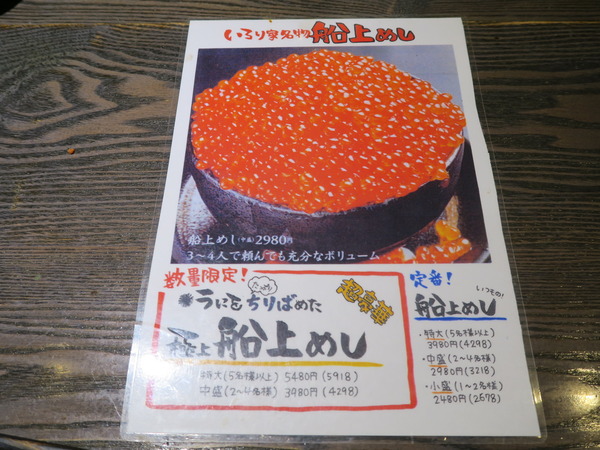 いろり家名物 船上めし
船上めし(中盛)2980円
3〜4人で頼んでも充分なボリューム
数量限定!
たっぷり
※うにをちりばめた
超豪華
極上 船上めし
特大(5名様以上) 5480円(5918)
中盛(2〜4名様) 3980円(4298)
定番!
いつもの!
船上めし
・特大(5名様以上)
3980円(4298)
・中盛(2〜4名様)
2980円(3218)
・小盛(1〜2名様)
2480円(2678)